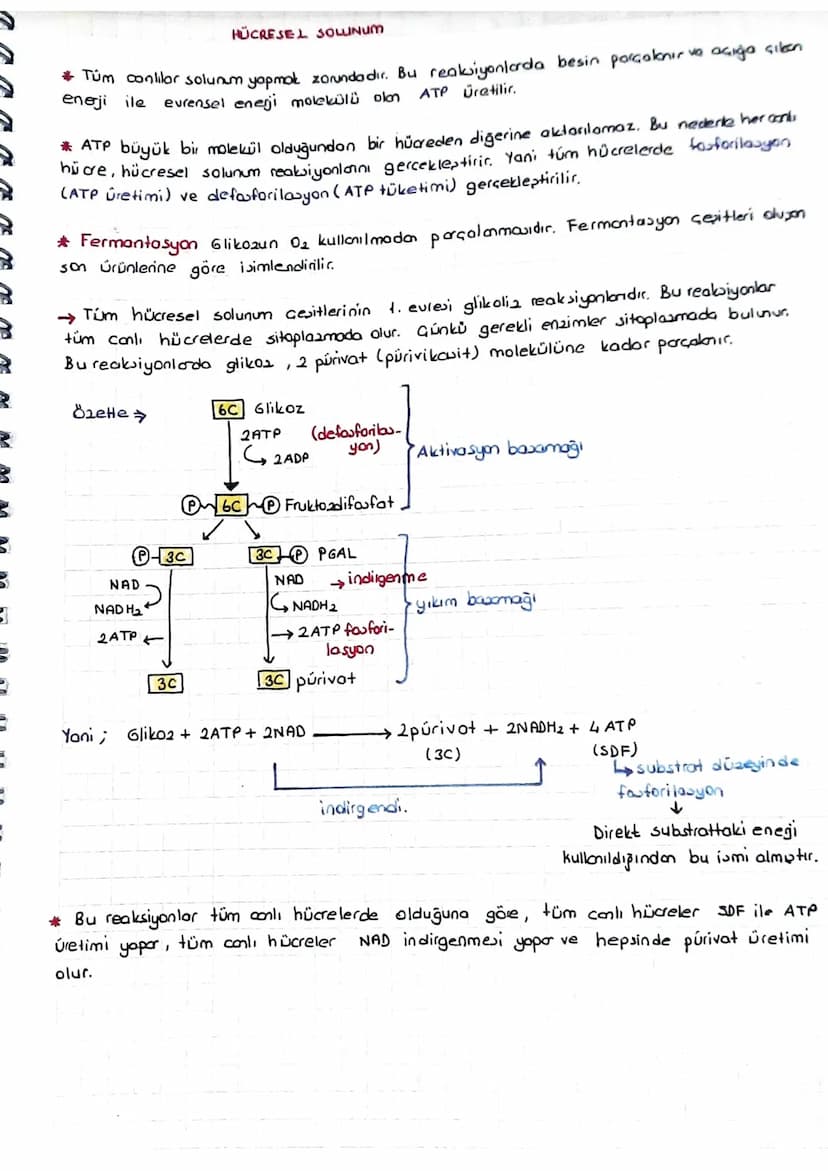 HÜCRESEL SOLUNUM
* Tüm canlılar solunum yapmak zorundadır. Bu reaksiyonlarda besin parçalanır ve açığa çıkan
enerji ile evrensel enerji molekülü olan ATP üretilir.
* ATP büyük bir molekül olduğundan bir hücreden diğerine aktarılamaz. Bu nedenle her canlı
hücre, hücresel solunum reaksiyonlarını gerçekleştirir. Yani tüm hücrelerde fosforilasyon
(ATP üretimi) ve defosforilasyon (ATP tüketimi) gerçekleştirilir.
* Fermantasyon Glikozun O₂ kullanılmadan parçalanmasıdır. Fermantasyon çeşitleri oluşan
son ürünlerine göre isimlendirilir.
→ Tüm hücresel solunum çeşitlerinin 1. evresi glikoliz reaksiyonlarıdır. Bu reaksiyonlar
tüm canlı hücrelerde sitoplazmada olur. Çünkü gerekli enzimler sitoplazmada bulunur.
Bu reaksiyonlarda glikoz, 2 pürivat (pürivikasit) molekülüne kadar parçalanır.
Özetle →
6C Glikoz
2ATP (defosforilas-
yon)
→ 2ADP
Aktivasyon basamağı
P 6C P Fruktozdifosfat
P 3C 3C P PGAL
NAD NAD → indirgenme
NADH₂ NADH₂
yıkım basamağı
2ATP ← → 2ATP fosfori-
lasyon
3C 3C pürivat
Yani ; Glikoz + 2ATP + 2NAD → 2pürivat + 2NADH₂ + 4 ATP
(3C) (SDF)
↳ substrat düzeyinde
fosforilasyon
indirgendi.
↓
Direkt substrattaki eneği
kullanıldığından bu ismi almıştır.
* Bu reaksiyonlar tüm canlı hücrelerde olduğuna göre, tüm canlı hücreler SDF ile ATP
üretimi yapar, tüm canlı hücreler NAD indirgenmesi yapar ve hepsinde pürivat üretimi
olur.